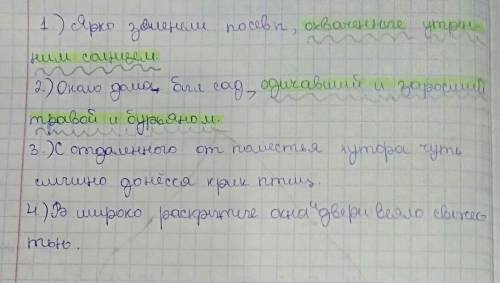 1) Ярко зеленеют посевы, охваченные утрен-
ним солнцем.
2.) Около дома, был сад, одичавший и заросший
травой и бурьяном.
3.) С отдаленного от поместья хутора чуть
слышно донёсся крик птиц.
4.) В широко раскрытые окна и двери веяло свежес-
тью.